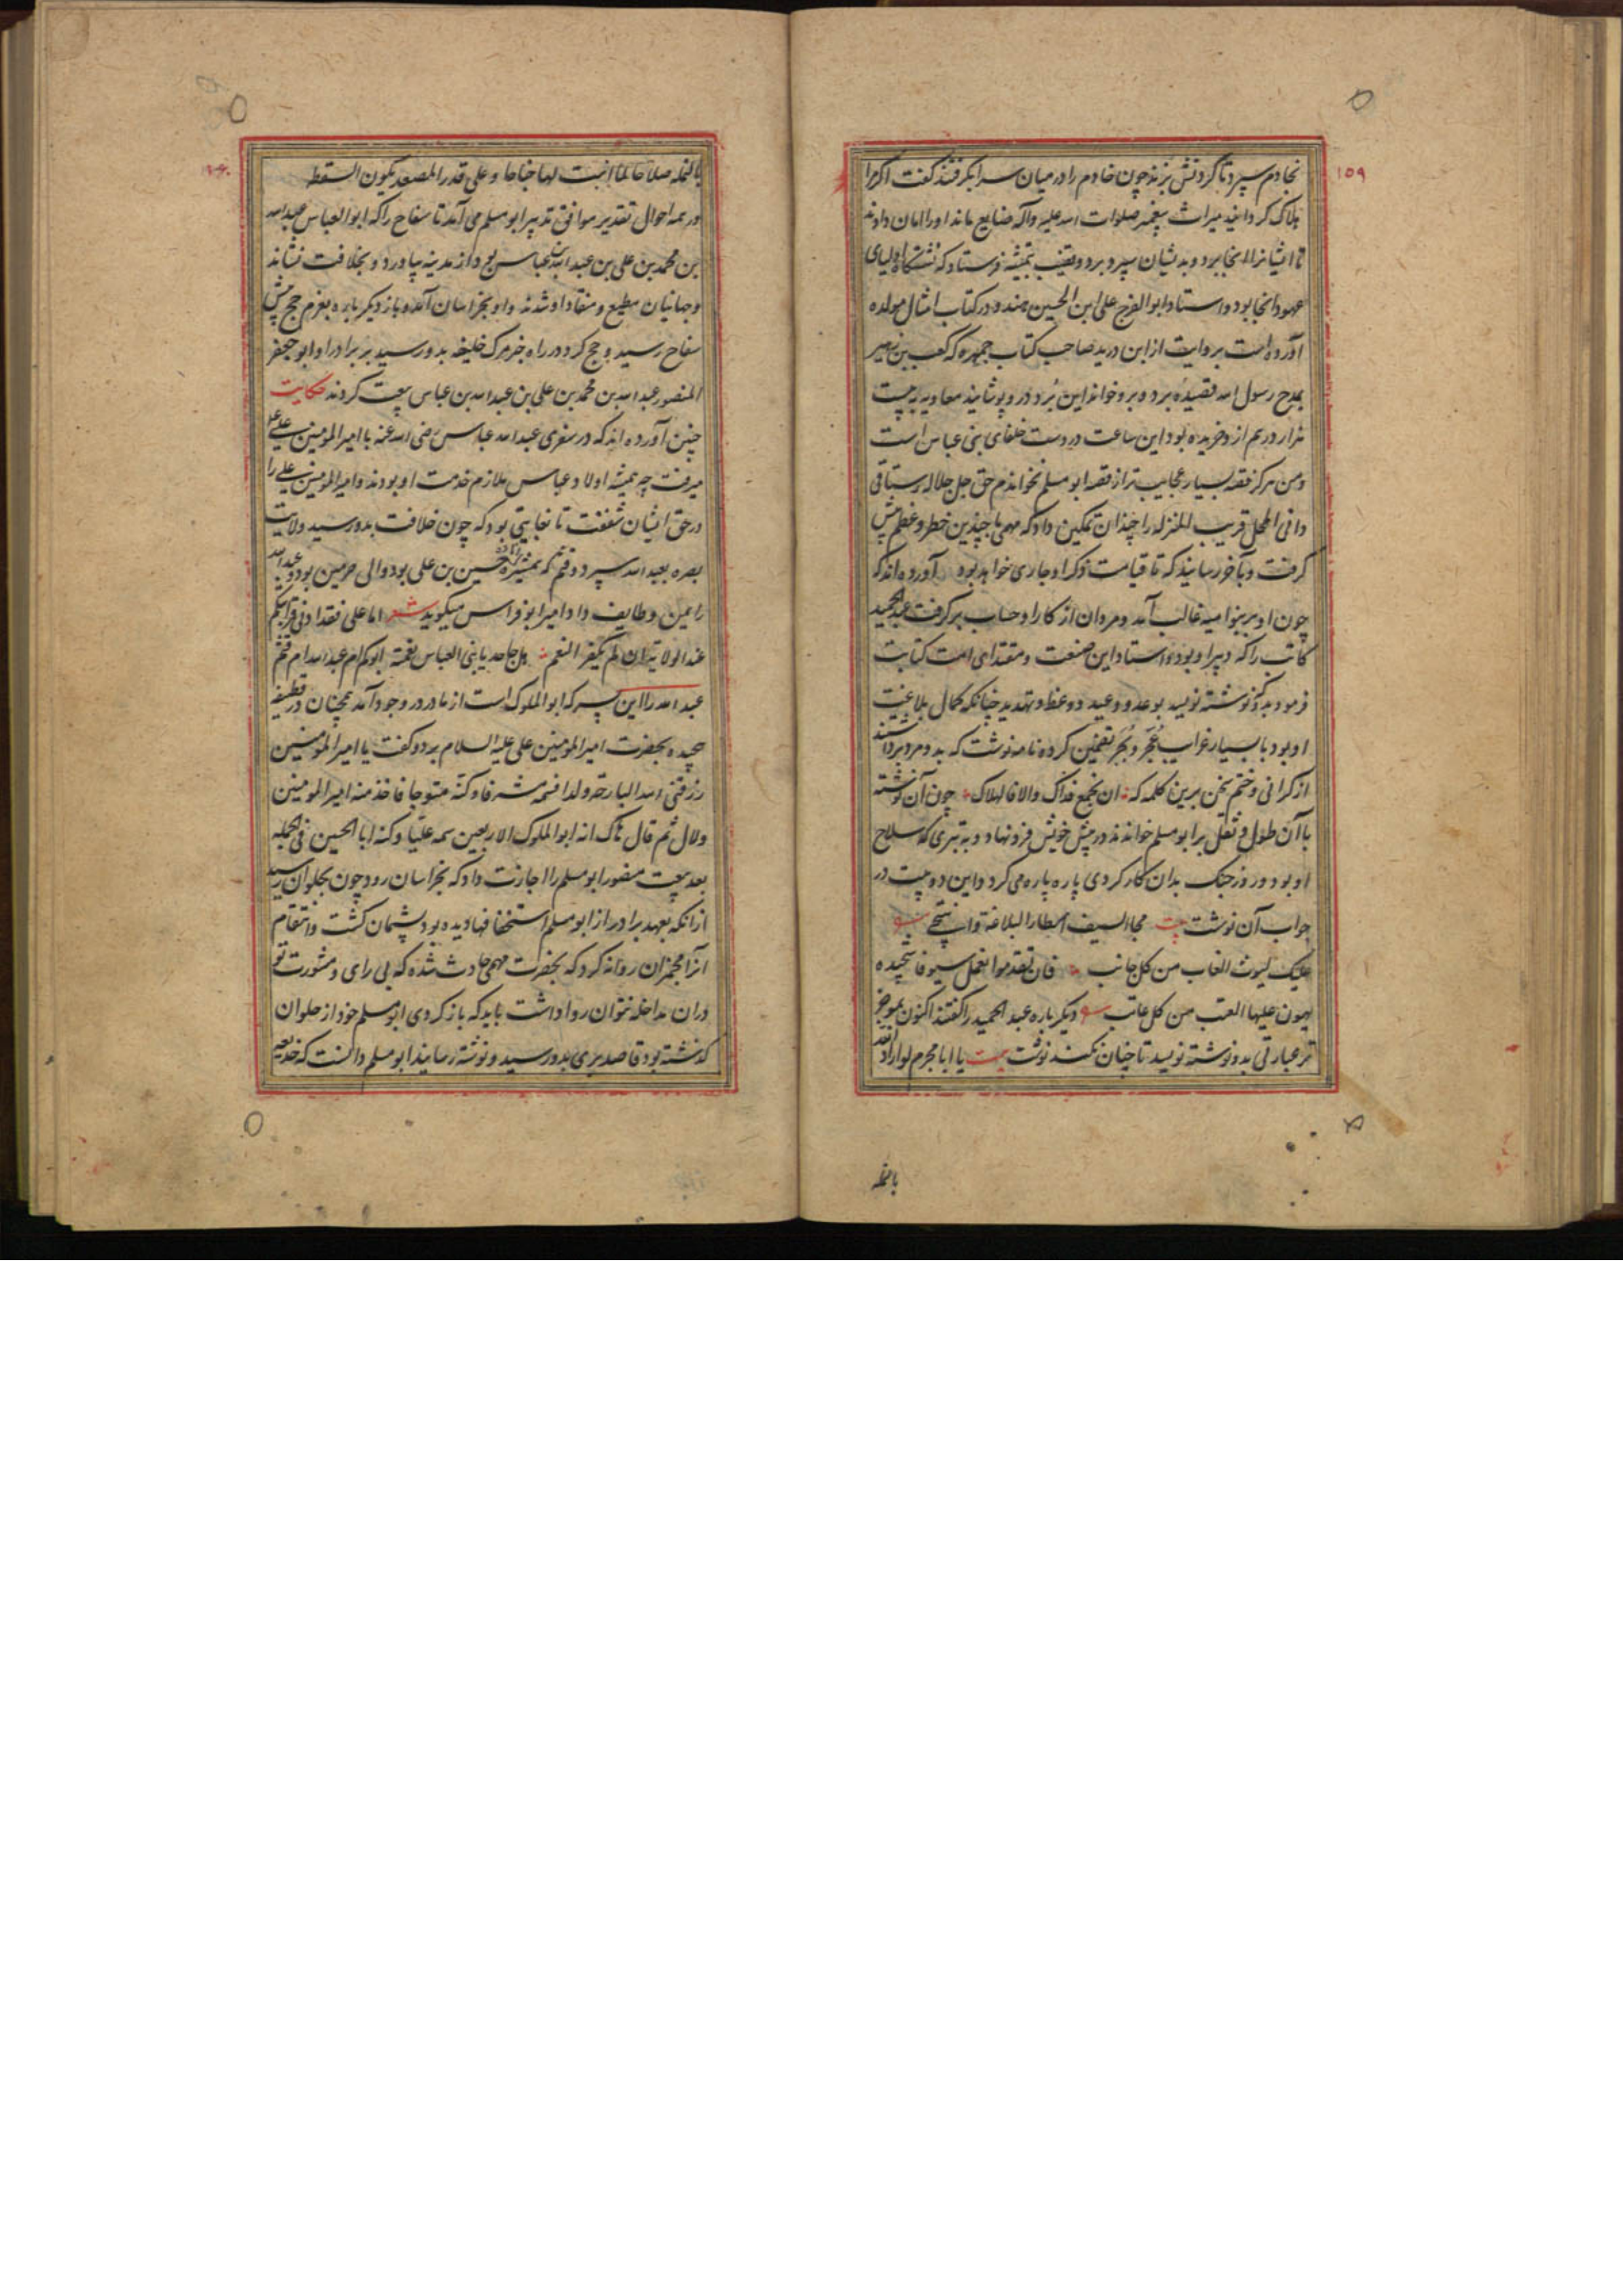 ۱۵۹
بخادم سپرد تا گردنش بزند چون خادم را در میان سرا بگرفتند گفت اگر مرا
هلاک گردانید میراث پیغمبر صلوات الله علیه وآله ضایع ماند او را امان دادند
تا ایشانرا آنجا برد و بدیشان سپرد برد و قضیب بتمیشه فرستاد که نشستگاه اولیای
عهود آنجا بود و استاد ابو الفرج علی ابن الحسین هندو در کتاب امثال مولده
آورده است بروایت از ابن درید صاحب کتاب جمهره که کعب بن زهیر
بمدح رسول الله قصیده برد و برو خواند این بُرد درو پوشانید معاویه به بیست
هزار درهم ازو خریده بود این ساعت در دست خلفای بنی عباس است
و من هرگز قصه بسیار عجایب تر از قصه ابو مسلم نخواندم حق جل جلاله رستاقی
دانی المحل قریب المنزله را چندان تمکین داد که مهمی با چندین خطر و عظم پیش
گرفت و بآخر رسانید که تا قیامت ذکر او جاری خواهد بود آورده اند که
چون او بر بنو امیه غالب آمد و مروان از کار او حساب برگرفت عبد الحمید
کاتب را که دبیر او بود و استاد این صنعت و مقتدای امت کتابت
فرمود بدو نوشته نویسد بوعد و وعید و وعظ و تهدید چنانکه کمال بلاغت
او بود با بسیار غرایب عُجَر و بُجَر تضمین کرده نامه نوشت که بدو مرد برداشتند
از گرانی و ختم سخن برین کلمه که ان نجمع فذاک والا فالهلاک چون آن نوشته
با آن طول و ثقل بر ابو مسلم خواندند در پیش خویش فرو نهاد و به تبری که سلاح
او بود و روز جنگ بدان کار کردی پاره پاره می کرد و این دو بیت در
جواب آن نوشت بیت محا السیف اسطار البلاغة و انتحی
علیک لیوث الغاب من کل جانب فان تقدموا نعمل سیوفا شحیذه
یهون علیها العتب من کل عاتب دیگر باره عبد الحمید را گفتند اکنون بموجز
تر عبارتی بدو نوشته نویسد تا چنان نکند نوشت بیت یا ابا مجرم لو اراد الله
بالنملة
بالنملة صلاحا لما انبت لها جناحا و علی قدر المصعد یکون السقط
در همه احوال تقدیر موافق تدبیر ابو مسلم می آمد تا سفاح را که ابو العباس عبد الله
بن محمد بن علی بن عبد الله بن عباس بود از مدینه بیاورد و بخلافت نشاند
و جهانیان مطیع و منقاد او شدند و او بخراسان آمد و باز دیگر باره بعزم حج پیش
سفاح رسید و حج کرد در راه خبر مرگ خلیفه بدو رسید بر برادر او ابو جعفر
المنصور عبد الله بن محمد بن علی بن عبد الله بن عباس بیعت کردند حکایت
چنین آورده اند که در سفری عبد الله عباس رضی الله عنه با امیر المومنین علی
میرفت چه همیشه اولاد عباس ملازم خدمت او بودند و امیر المومنین علی را
در حق ایشان شفقت تا بغایتی بود که چون خلافت بدو رسید ولایت
بصره بعبد الله سپرد و قثم که همشیره حسین بن علی بود والی حرمین بود و عبید الله
را یمن و طایف داد امیر ابو فراس میگوید شعر اما علی فقد ادنی قرابتکم
عند الولایة ان لم یکفر النعم هل جاحد یا بنی العباس نعمته ابوکم ام عبد الله ام قثم
عبد الله را این پسر که ابو الملوک است از مادر در وجود آمد همچنان در قطیفه
پیچیده بحضرت امیر المومنین علی علیه السلام برد و گفت یا امیر المومنین
رزقنی الله البارحة ولدا فسمه مشرفا و کنه متوجا فاخذ منه امیر المومنین
ولاک ثم قال هاک انه ابو الملوک الاربعین سمه علیا و کنه ابا الحسین فی الجمله
بعد بیعت منصور ابو مسلم را اجازت داد که بخراسان رود چون بحلوان رسید
از آنکه بعهد برادر از ابو مسلم استخفافها دیده بود پشیمان گشت و انتقام
آنرا مجمزان روانه کرد که بحضرت مهمی حادث شده که بی رای و مشورت تو
در آن مداخله نتوان روا داشت باید که باز گردی ابو مسلم خود از حلوان
گذشته بود قاصد بری بدو رسید و نوشته رسانید ابو مسلم دانست که خدیعه